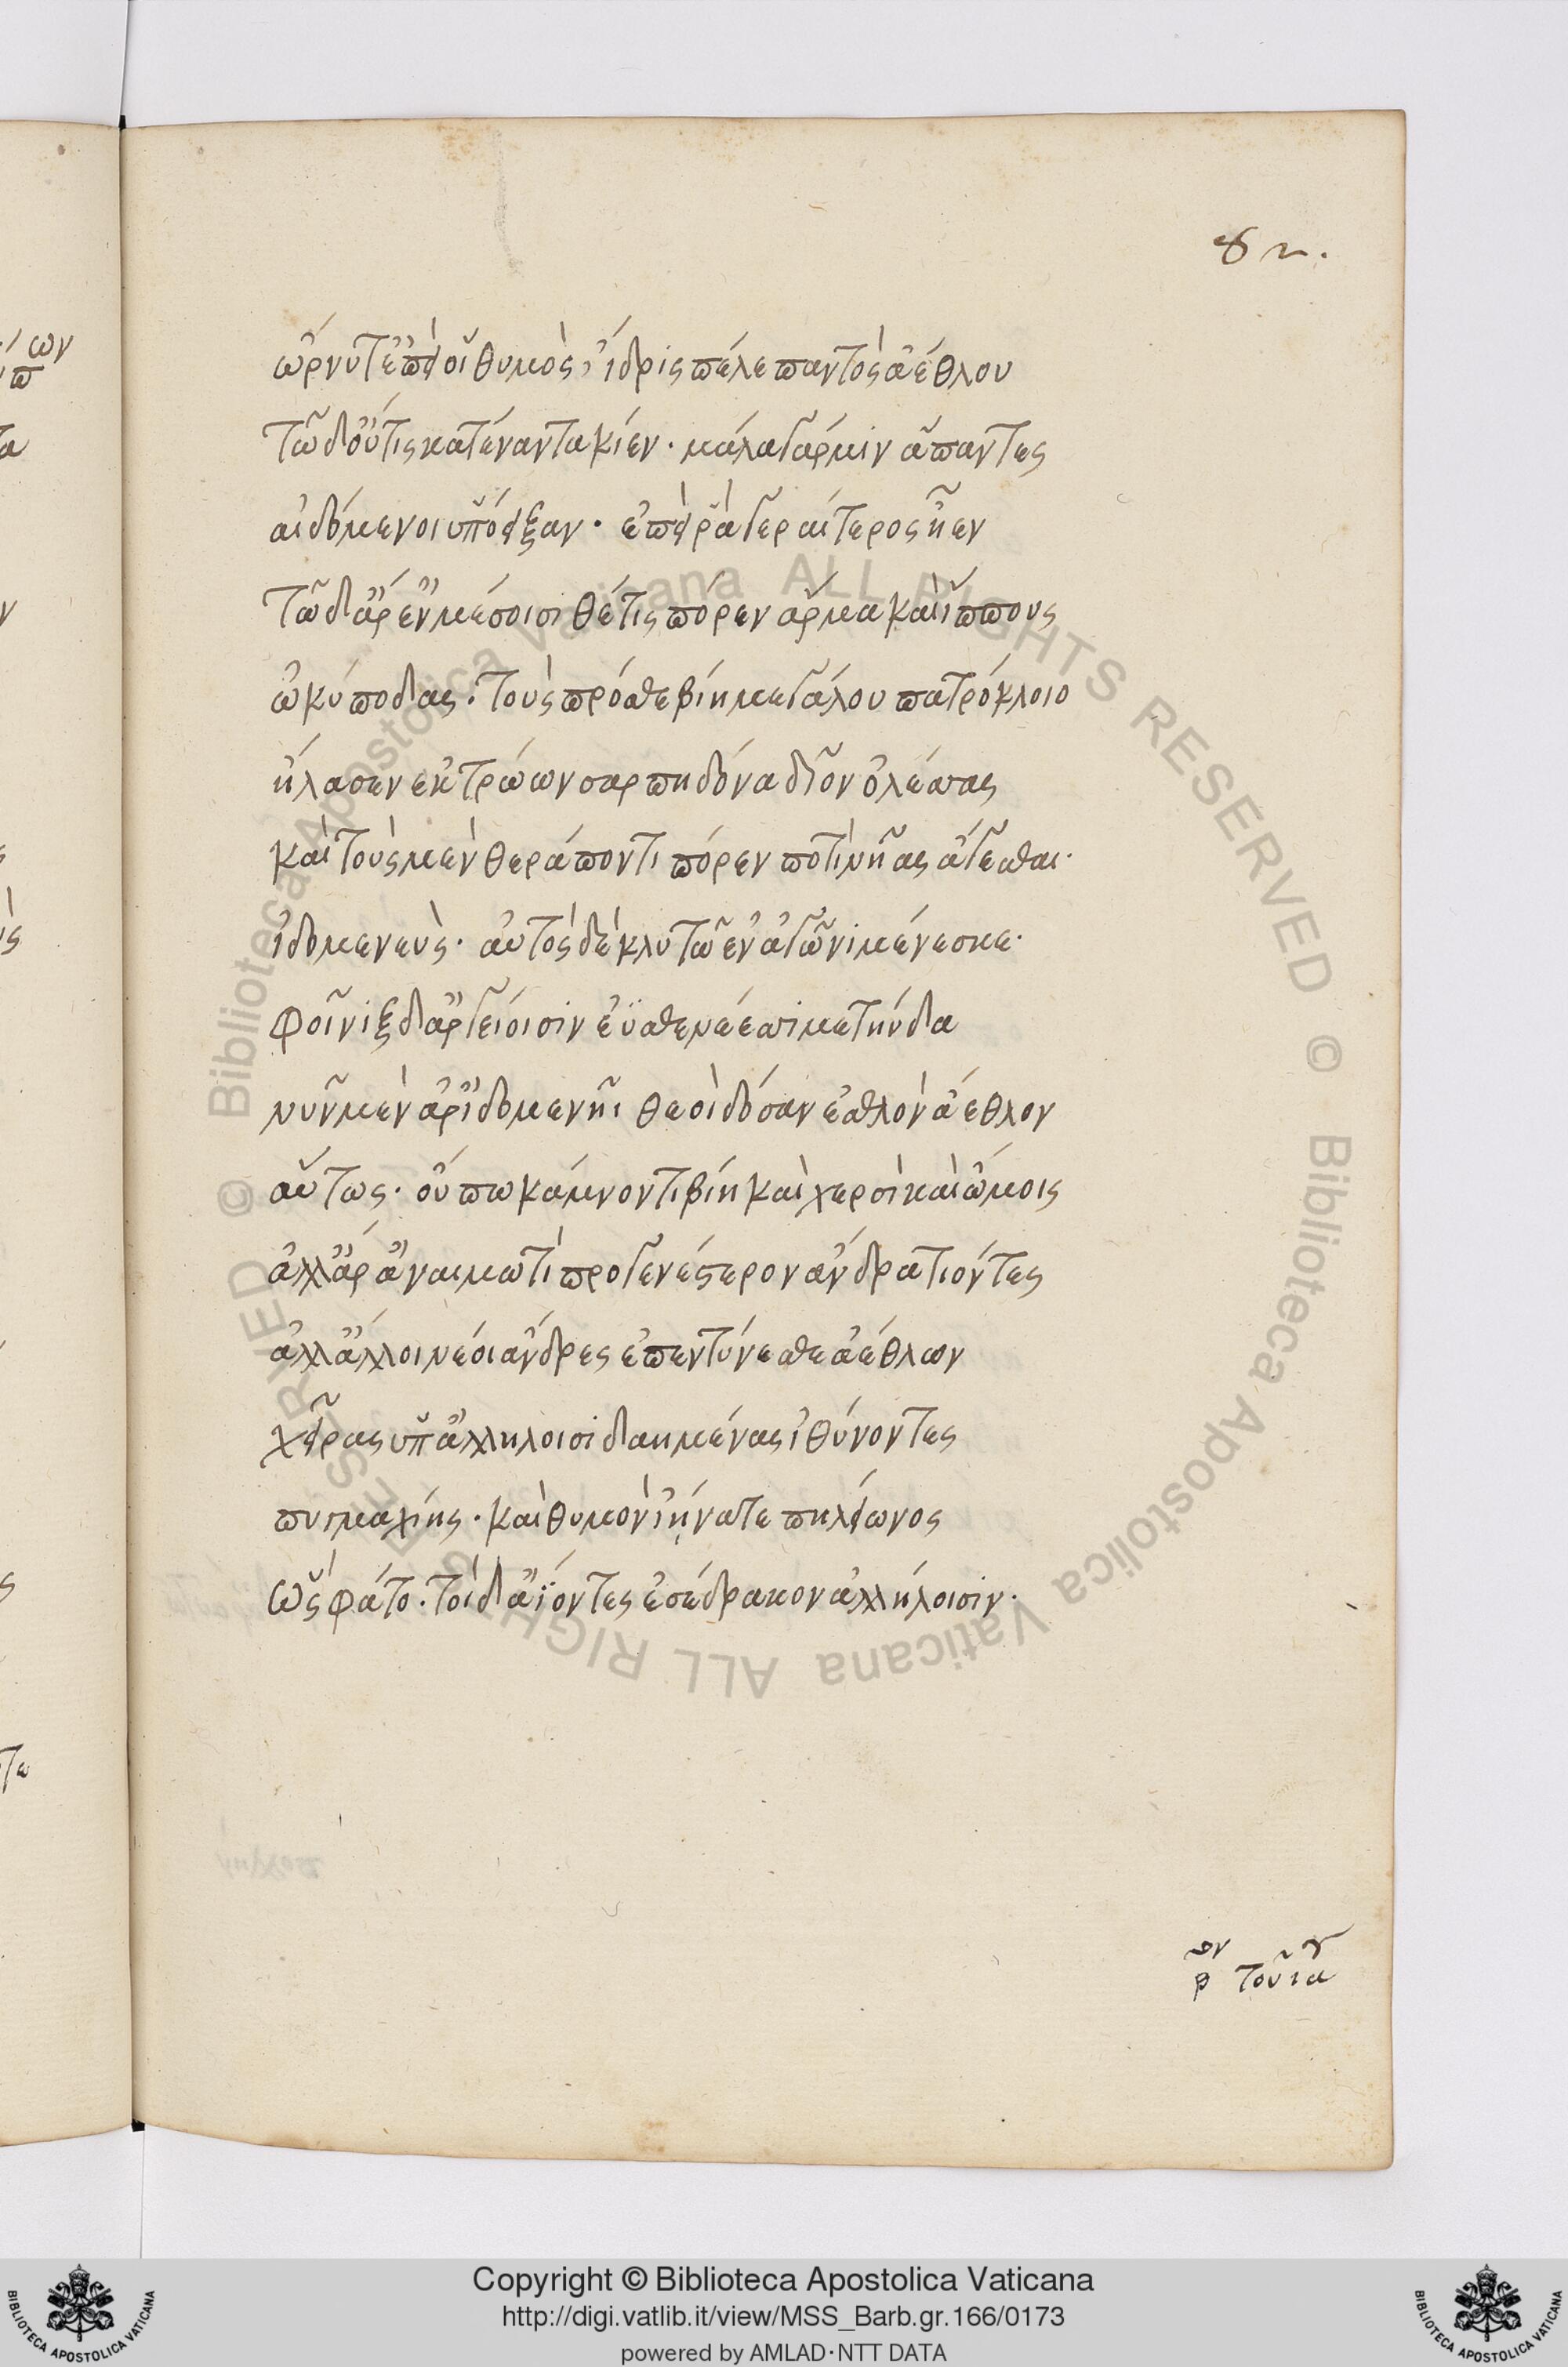 82.
ὤρνυτ' ἐπεὶ οἱ θυμὸς, ἴδρις πέλε παντὸς ἀέθλου
τῶ δ' οὔτις κατέναντα κίεν· μάλα γάρ μιν ἅπαντες
αἰδόμενοι ὑπόειξαν· ἐπεὶ ῥὰ γεραίτερος ἦεν
τῶ δ' ἄρ' ἐν μέσοισι θέτις πόρεν ἅρμα καὶ ἵππους
ὠκύποδας· τοὺς πρόσθε βίη μεγάλου πατρόκλοιο
ἤλασεν ἐκ τρώων σαρπηδόνα δῖον ὀλέσσας
καὶ τοὺς μὲν θεράποντι πόρεν ποτὶ νῆας ἄγεσθαι·
ἰδομενεὺς· αὐτὸς δὲ κλυτῶ ἐν ἀγῶνι μένεσκε·
φοῖνιξ δ' ἀργείοισιν ἐϋσθενέεσσι μετηύδα
νῦν μὲν ἄρ' ἰδομενῆι θεοὶ δόσαν ἐσθλὸν ἄεθλον
αὔτως· οὔπω κάμνοντι βίη καὶ χερσὶ καὶ ὤμοις
ἀλλ' ἄρ' ἀναιμωτὶ προγενέστερον ἄνδρα τίοντες
ἀλλ' ἄλλοι νέοι ἄνδρες ἐπεντύνεσθε ἀέθλων
χεῖρας ὑπ' ἀλλήλοισι δαημένας ἰθύνοντες
πυγμαχίης· καὶ θυμὸν ἰήνατε πηλείωνος
ὣς φάτο· τοὶ δ' ἀΐοντες ἐσέδρακον ἀλλήλοισιν·
Copyright © Biblioteca Apostolica Vaticana
http://digi.vatlib.it/view/MSS_Barb.gr.166/0173
powered by AMLAD·NTT DATA